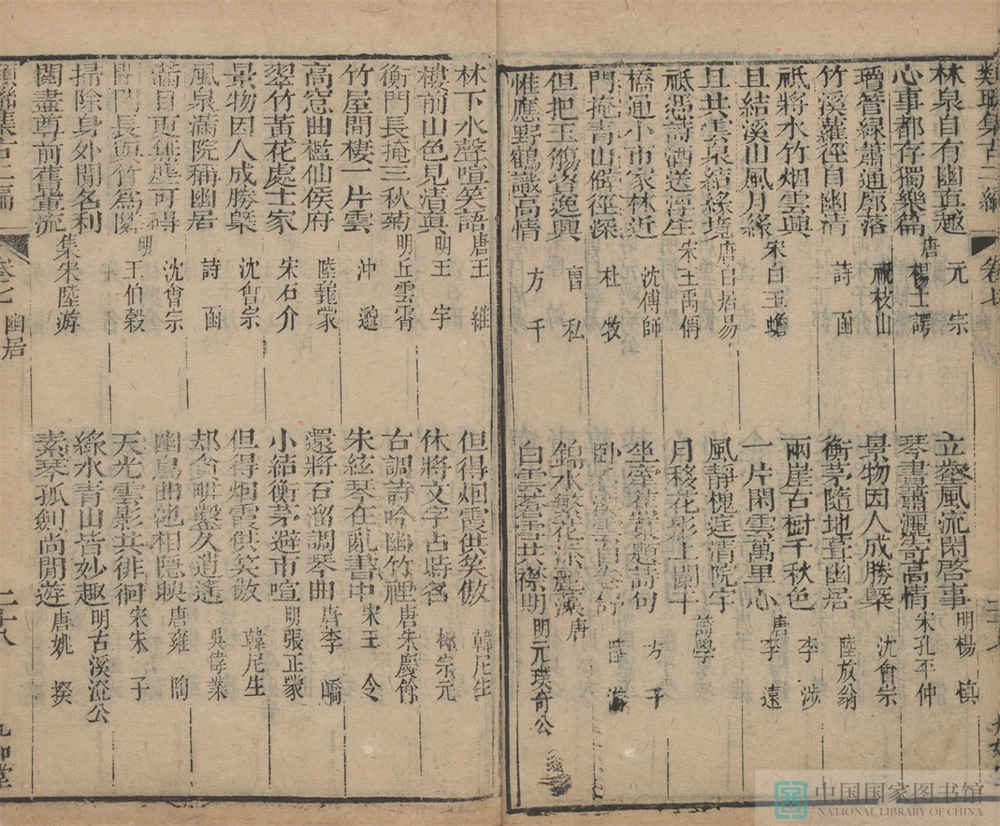 林泉自有幽眞趣 元宗
立 風流閑啓事 明楊慎
心事都存獨樂篇 唐楊士諤
琴書瀟灑寄高情 宋孔平仲
管綠蕭通郭落 祝枝山
景物因人成勝槩 沈會宗
竹溪蘿徑自幽清 詩 函
衡茅隨地葺幽居 陸放翁
祇將水竹烟雲興 宋白玉蟾
兩崖古樹千秋色 唐李涉
且結溪山風月緣
一片閑雲萬里心 李遠
且共雲泉結緣境 唐白居易
風靜槐庭清院宇 萬學
祇憑詩酒送浮生 宋王禹偁
月移花影上闌干
橋通小市家林近 沈傅師
坐牽蕉葉題詩句 方干
門掩青山 徑深 杜牧
卧 陸游
但把玉觴皆逸興 曾私
錦水繁花添麗藻 唐
惟應野鶴識高情 方干
白雲蒼雪共襟期 明元璞奇公
林下水聲喧笑語 唐王維
但得烟霞供笑傲 韓尼生
樓前山色見清眞 明王宇
休將文字占時名 柳宗元
衡門長掩三秋菊 明丘雲霄
古調詩吟幽竹裡 唐朱慶餘
竹屋閒棲一片雲 冲邈
朱絃琴在亂書中 宋王令
高窓曲檻仙侯府 陸龜蒙
還將石溜調琴曲 唐李嶠
翠竹黃花處士家 宋石介
小結衡茅避市喧 明張正蒙
景物因人成勝槩 沈會宗
但得烟霞供笑傲 韓尼生
風泉滿院稱幽居 詩 函
却貪畊鑿久逍遙 吳偉業
滿目更無塵可碍 沈會宗
幽鳥曲池相隱映 唐雍陶
閉門長與竹爲隣 明王伯榖
天光雲影共徘徊 宋朱子
掃除身外閒名利
綠水青山皆妙趣 明古溪澄公
閱盡尊前舊輩流 集宋陸游
素琴孤劍尚閒遊 唐姚揆
幽居
二十八
中国国家图书馆
NATIONAL LIBRARY OF CHINA